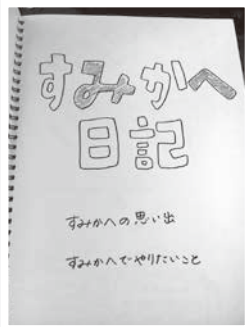 すみかへ
日記
すみかへの思い出
すみかへでやりたいこと